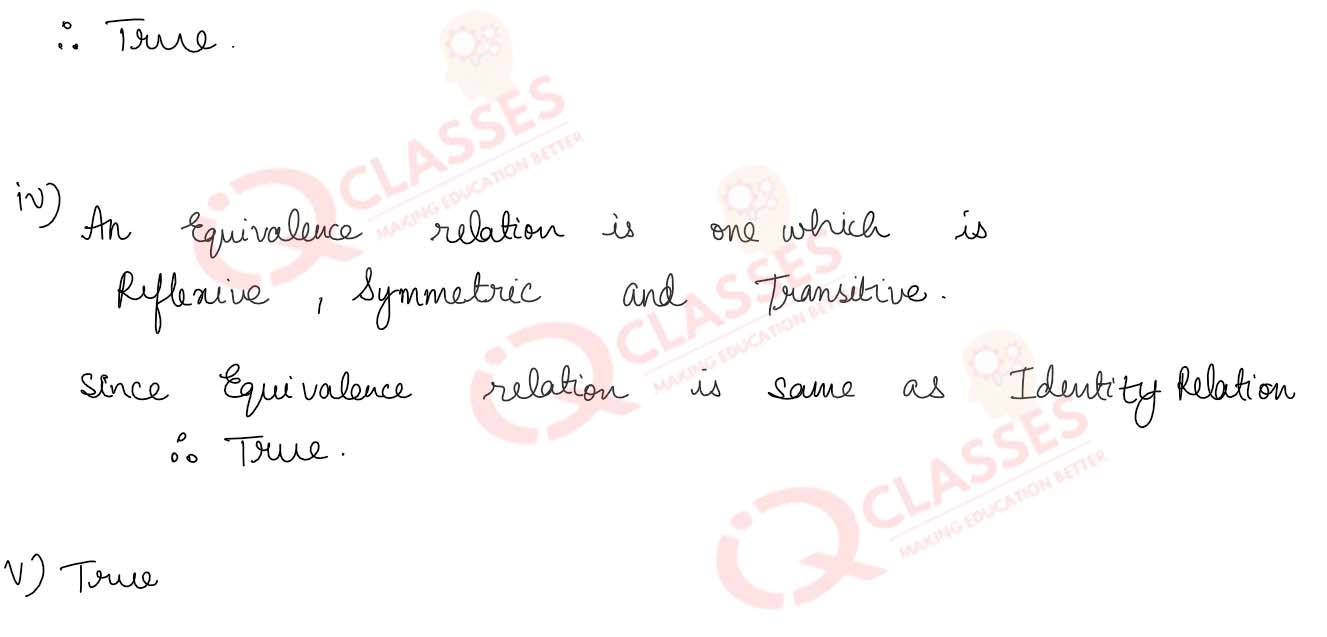 ∴ True.
iv) An Equivalence relation is one which is
Reflexive, Symmetric and Transitive.
Since Equivalence relation is same as Identity Relation
∴ True.
v) True
iQ CLASSES
MAKING EDUCATION BETTER
iQ CLASSES
MAKING EDUCATION BETTER
iQ CLASSES
MAKING EDUCATION BETTER